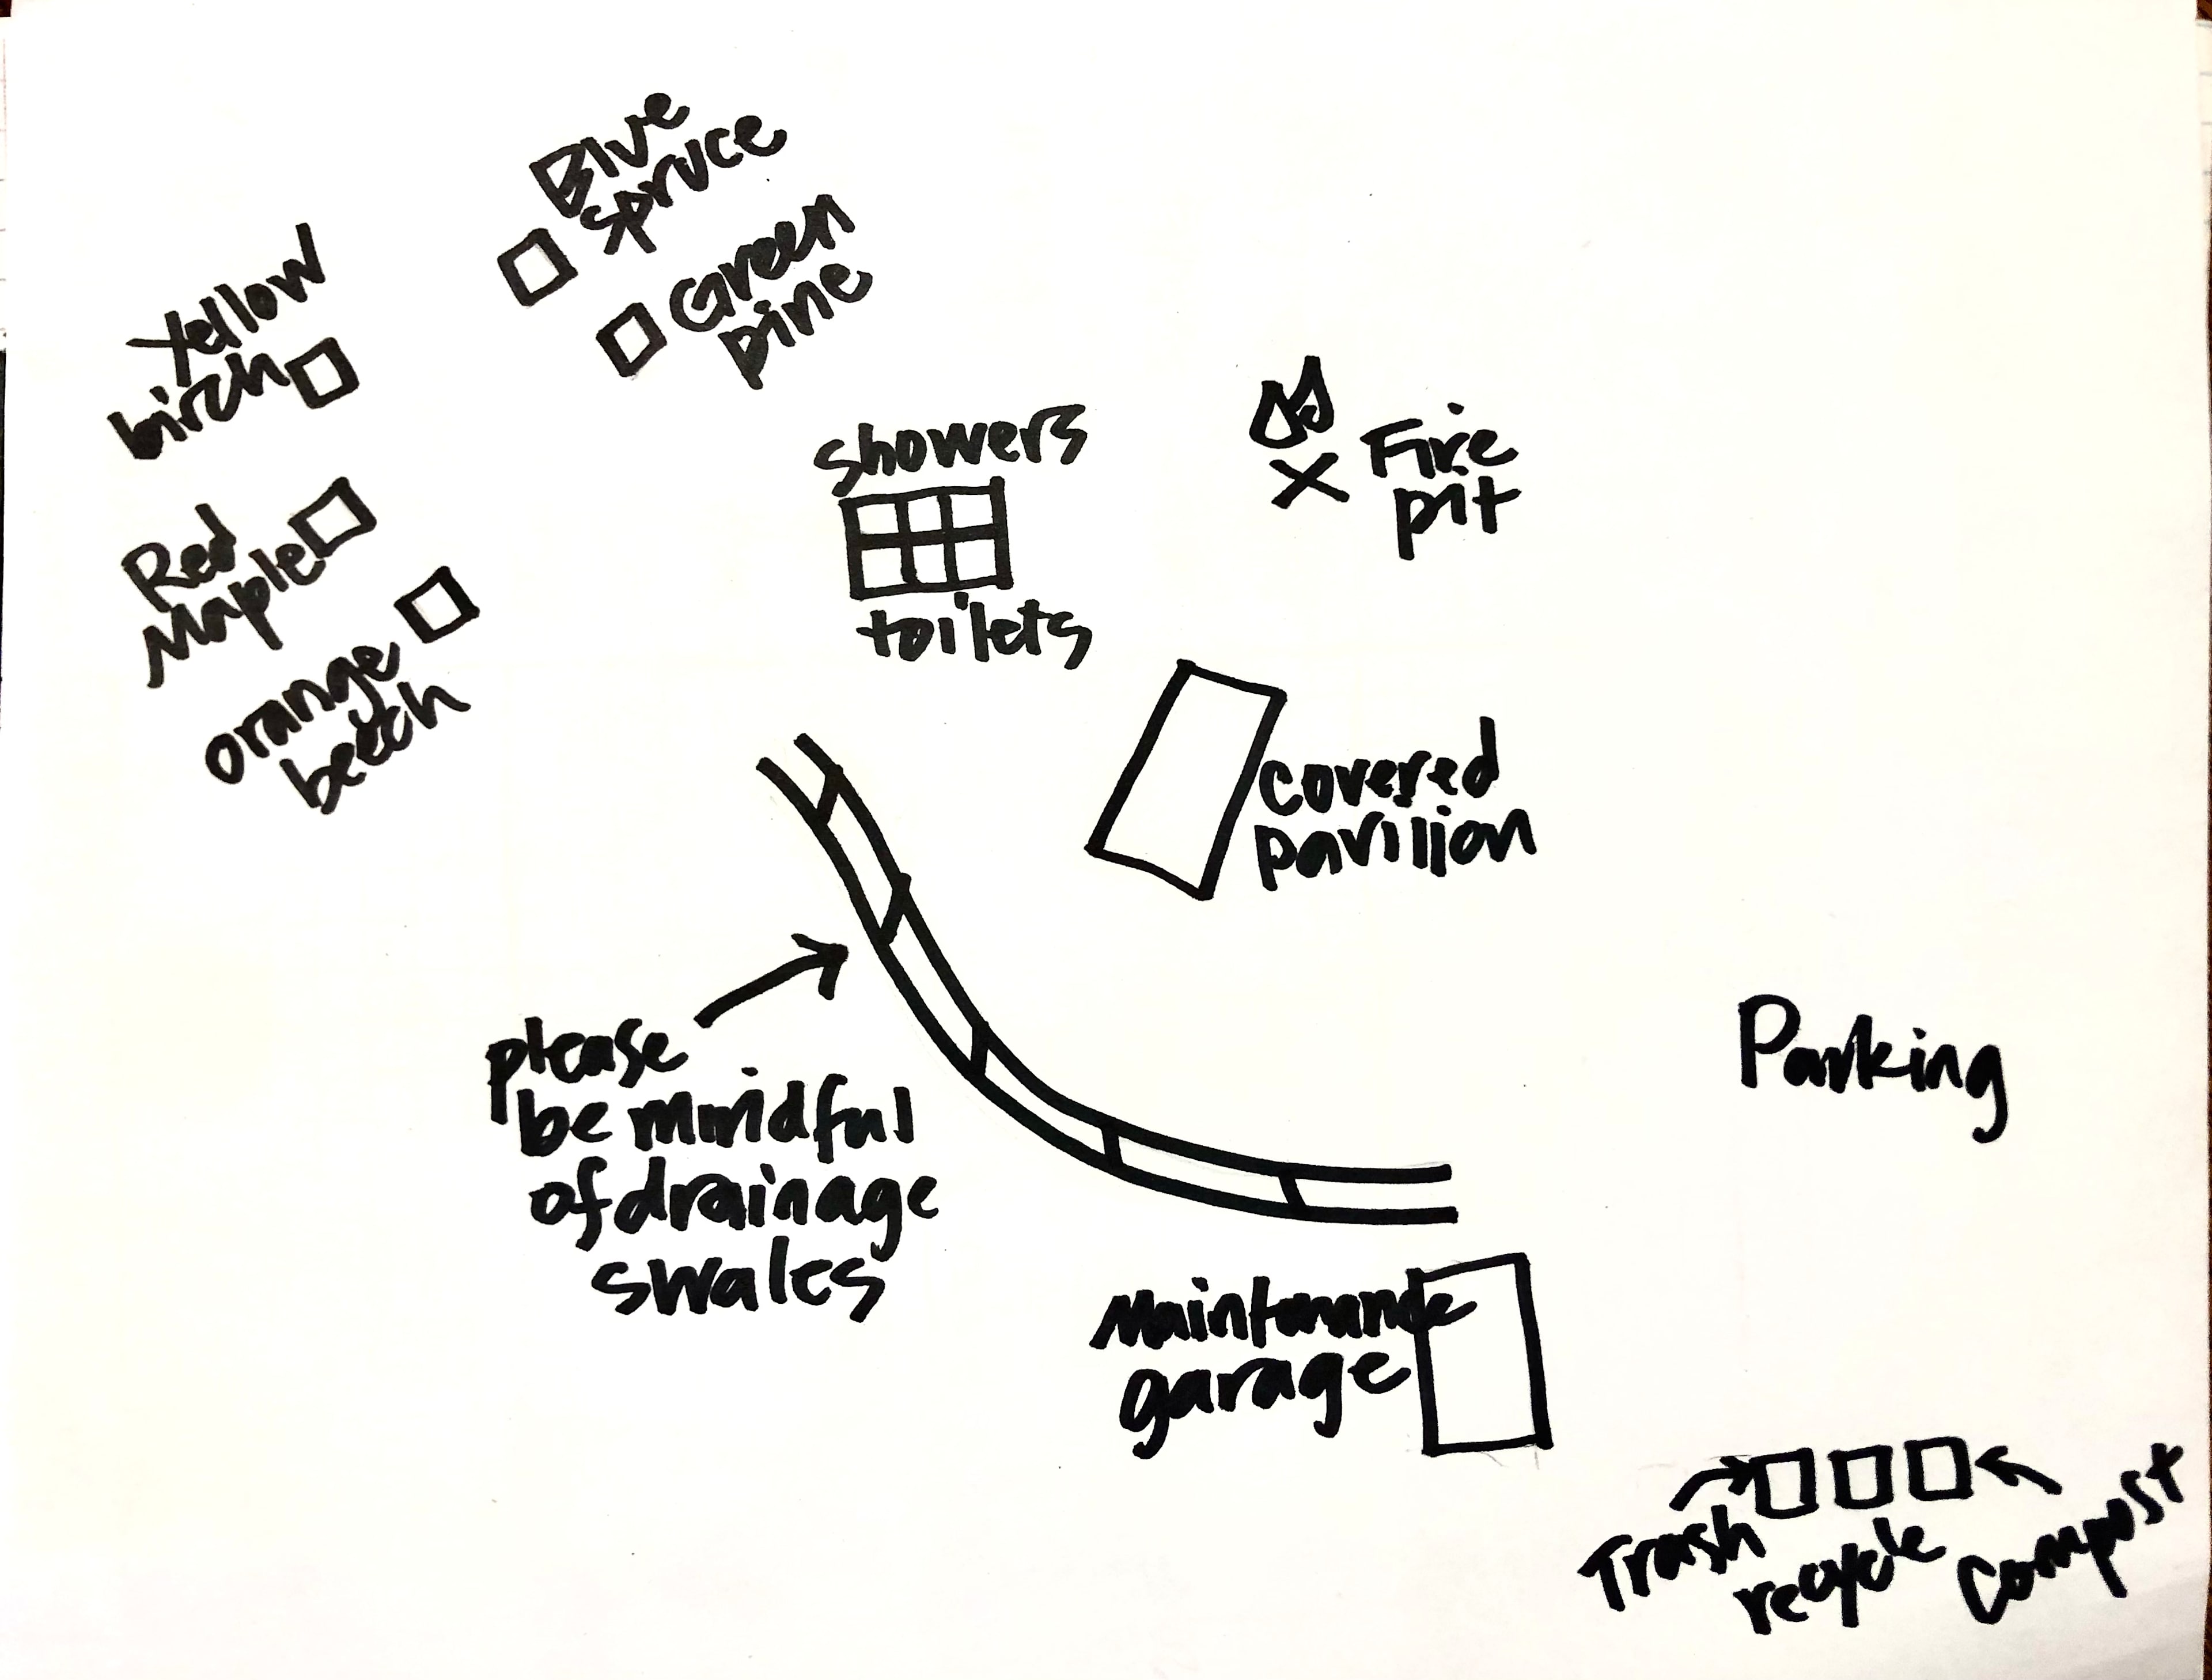 Blue
spruce
Green
pine
Yellow
birch
Red
Maple
orange
beech
showers
toilets
Fire
pit
covered
pavilion
please
be mindful
of drainage
swales
Parking
Maintenance
garage
Trash
recycle
compost